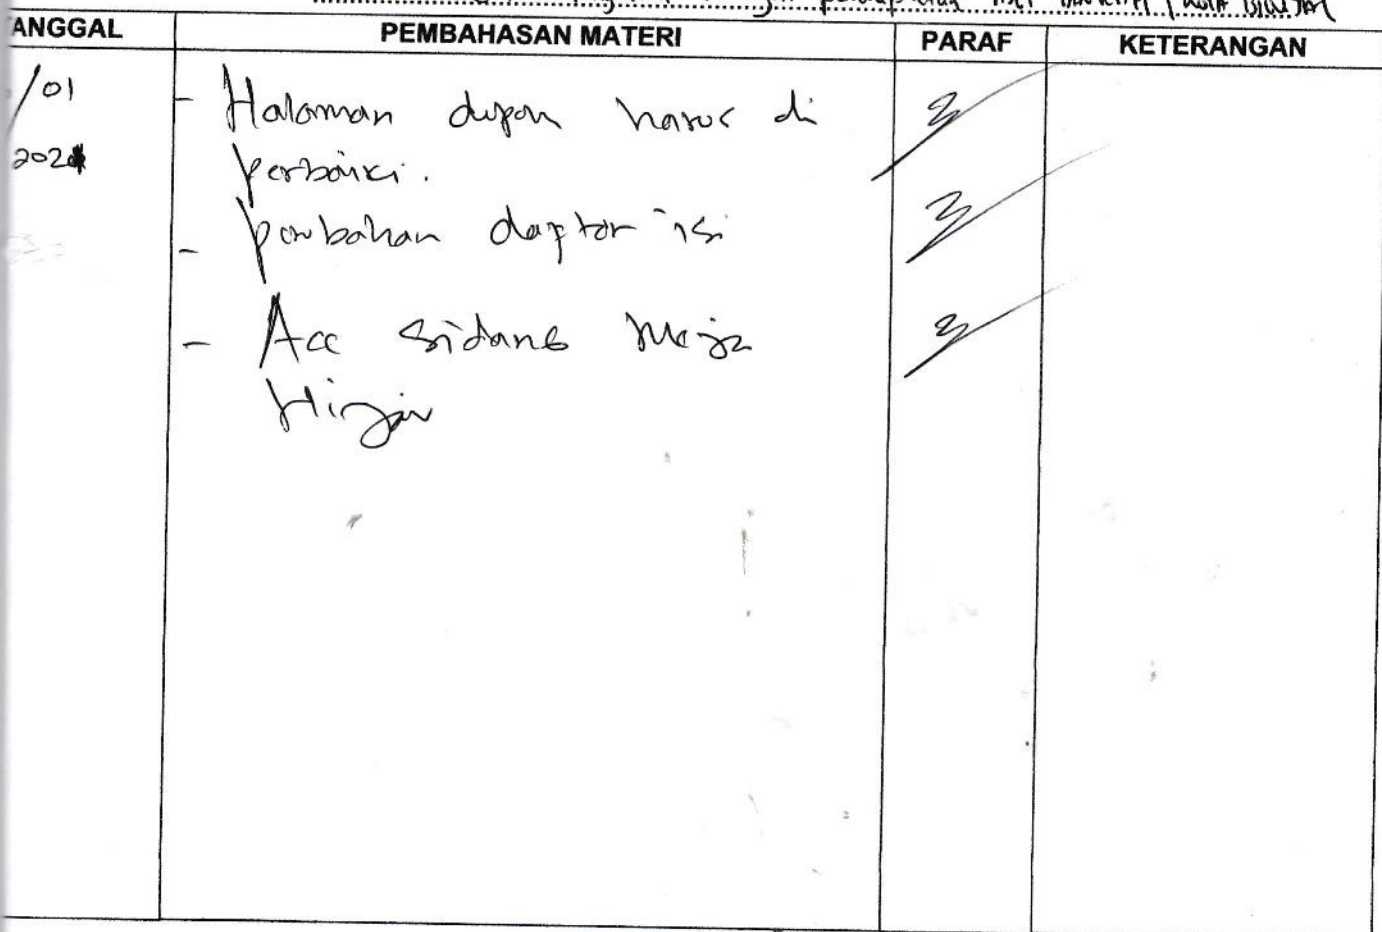 ANGGAL PEMBAHASAN MATERI PARAF KETERANGAN
/01
2024
- Halaman depan harus di
perbaiki.
- perubahan daftar isi
- Acc Sidang Meja
Hijau